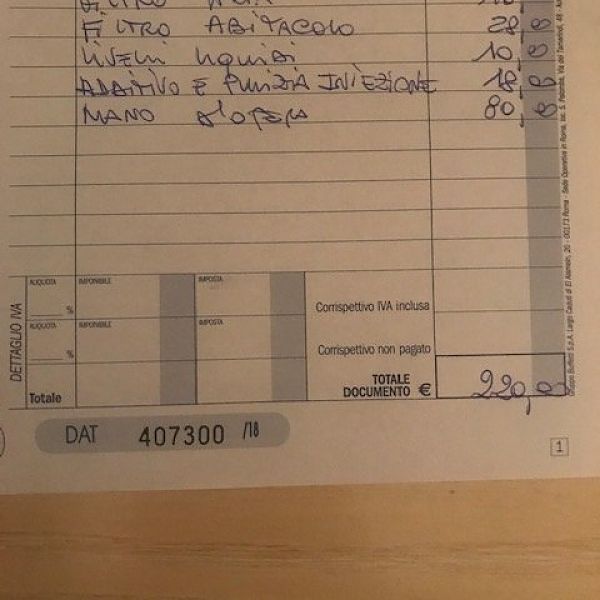 FILTRO
FILTRO ABITACOLO 28,00
LIVELLI LIQUIDI 10,00
ADDITIVO E PULIZIA INIEZIONE 18,00
MANO D'OPERA 80,00
DETTAGLIO IVA
ALIQUOTA IMPONIBILE IMPOSTA
%
Corrispettivo IVA inclusa
ALIQUOTA IMPONIBILE IMPOSTA
%
Corrispettivo non pagato
Totale
TOTALE
DOCUMENTO € 220,00
DAT 407300 /18
1
Gruppo Buffetti S.p.A. Largo Caduti di El Alamein, 20 - 00173 Roma - Sede Operativa in Roma, loc. S. Palomba, Via dei Tamarindi, 48